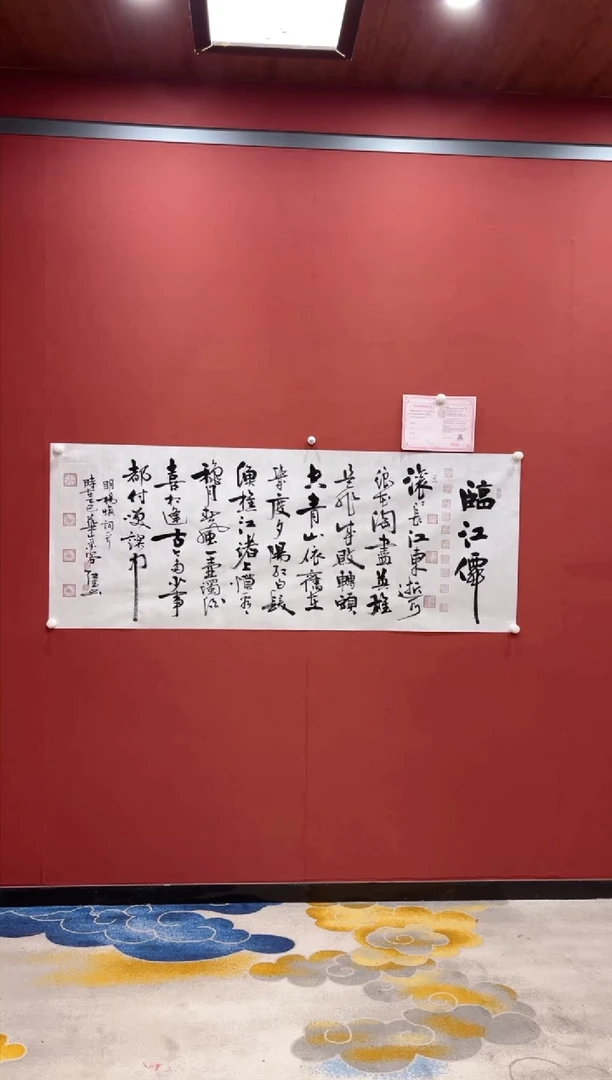 臨江僊
滚滚長江東逝水
浪花淘盡英雄
是非成敗轉頭
空青山依舊在
幾度夕陽紅白髮
漁樵江渚上慣看
穐月春風一壺濁酒
喜相逢古今多少事
都付笑談中
明楊慎詞